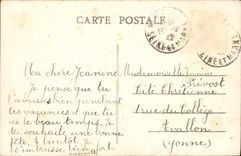 CARTE POSTALE
SEINE ET MARNE
SEINE ET MARNE
Ma chère Jeanine
Je pense que tu
t'amuses bien pendant
les vacances et que tu
as le beau temps. Je
te souhaite une bonne
fête, à bientôt. Je
t'embrasse bien fort.
Mademoiselle Jeanine
Prévost
Cité Chrétienne
rue du Collège
Avallon
(Yonne)